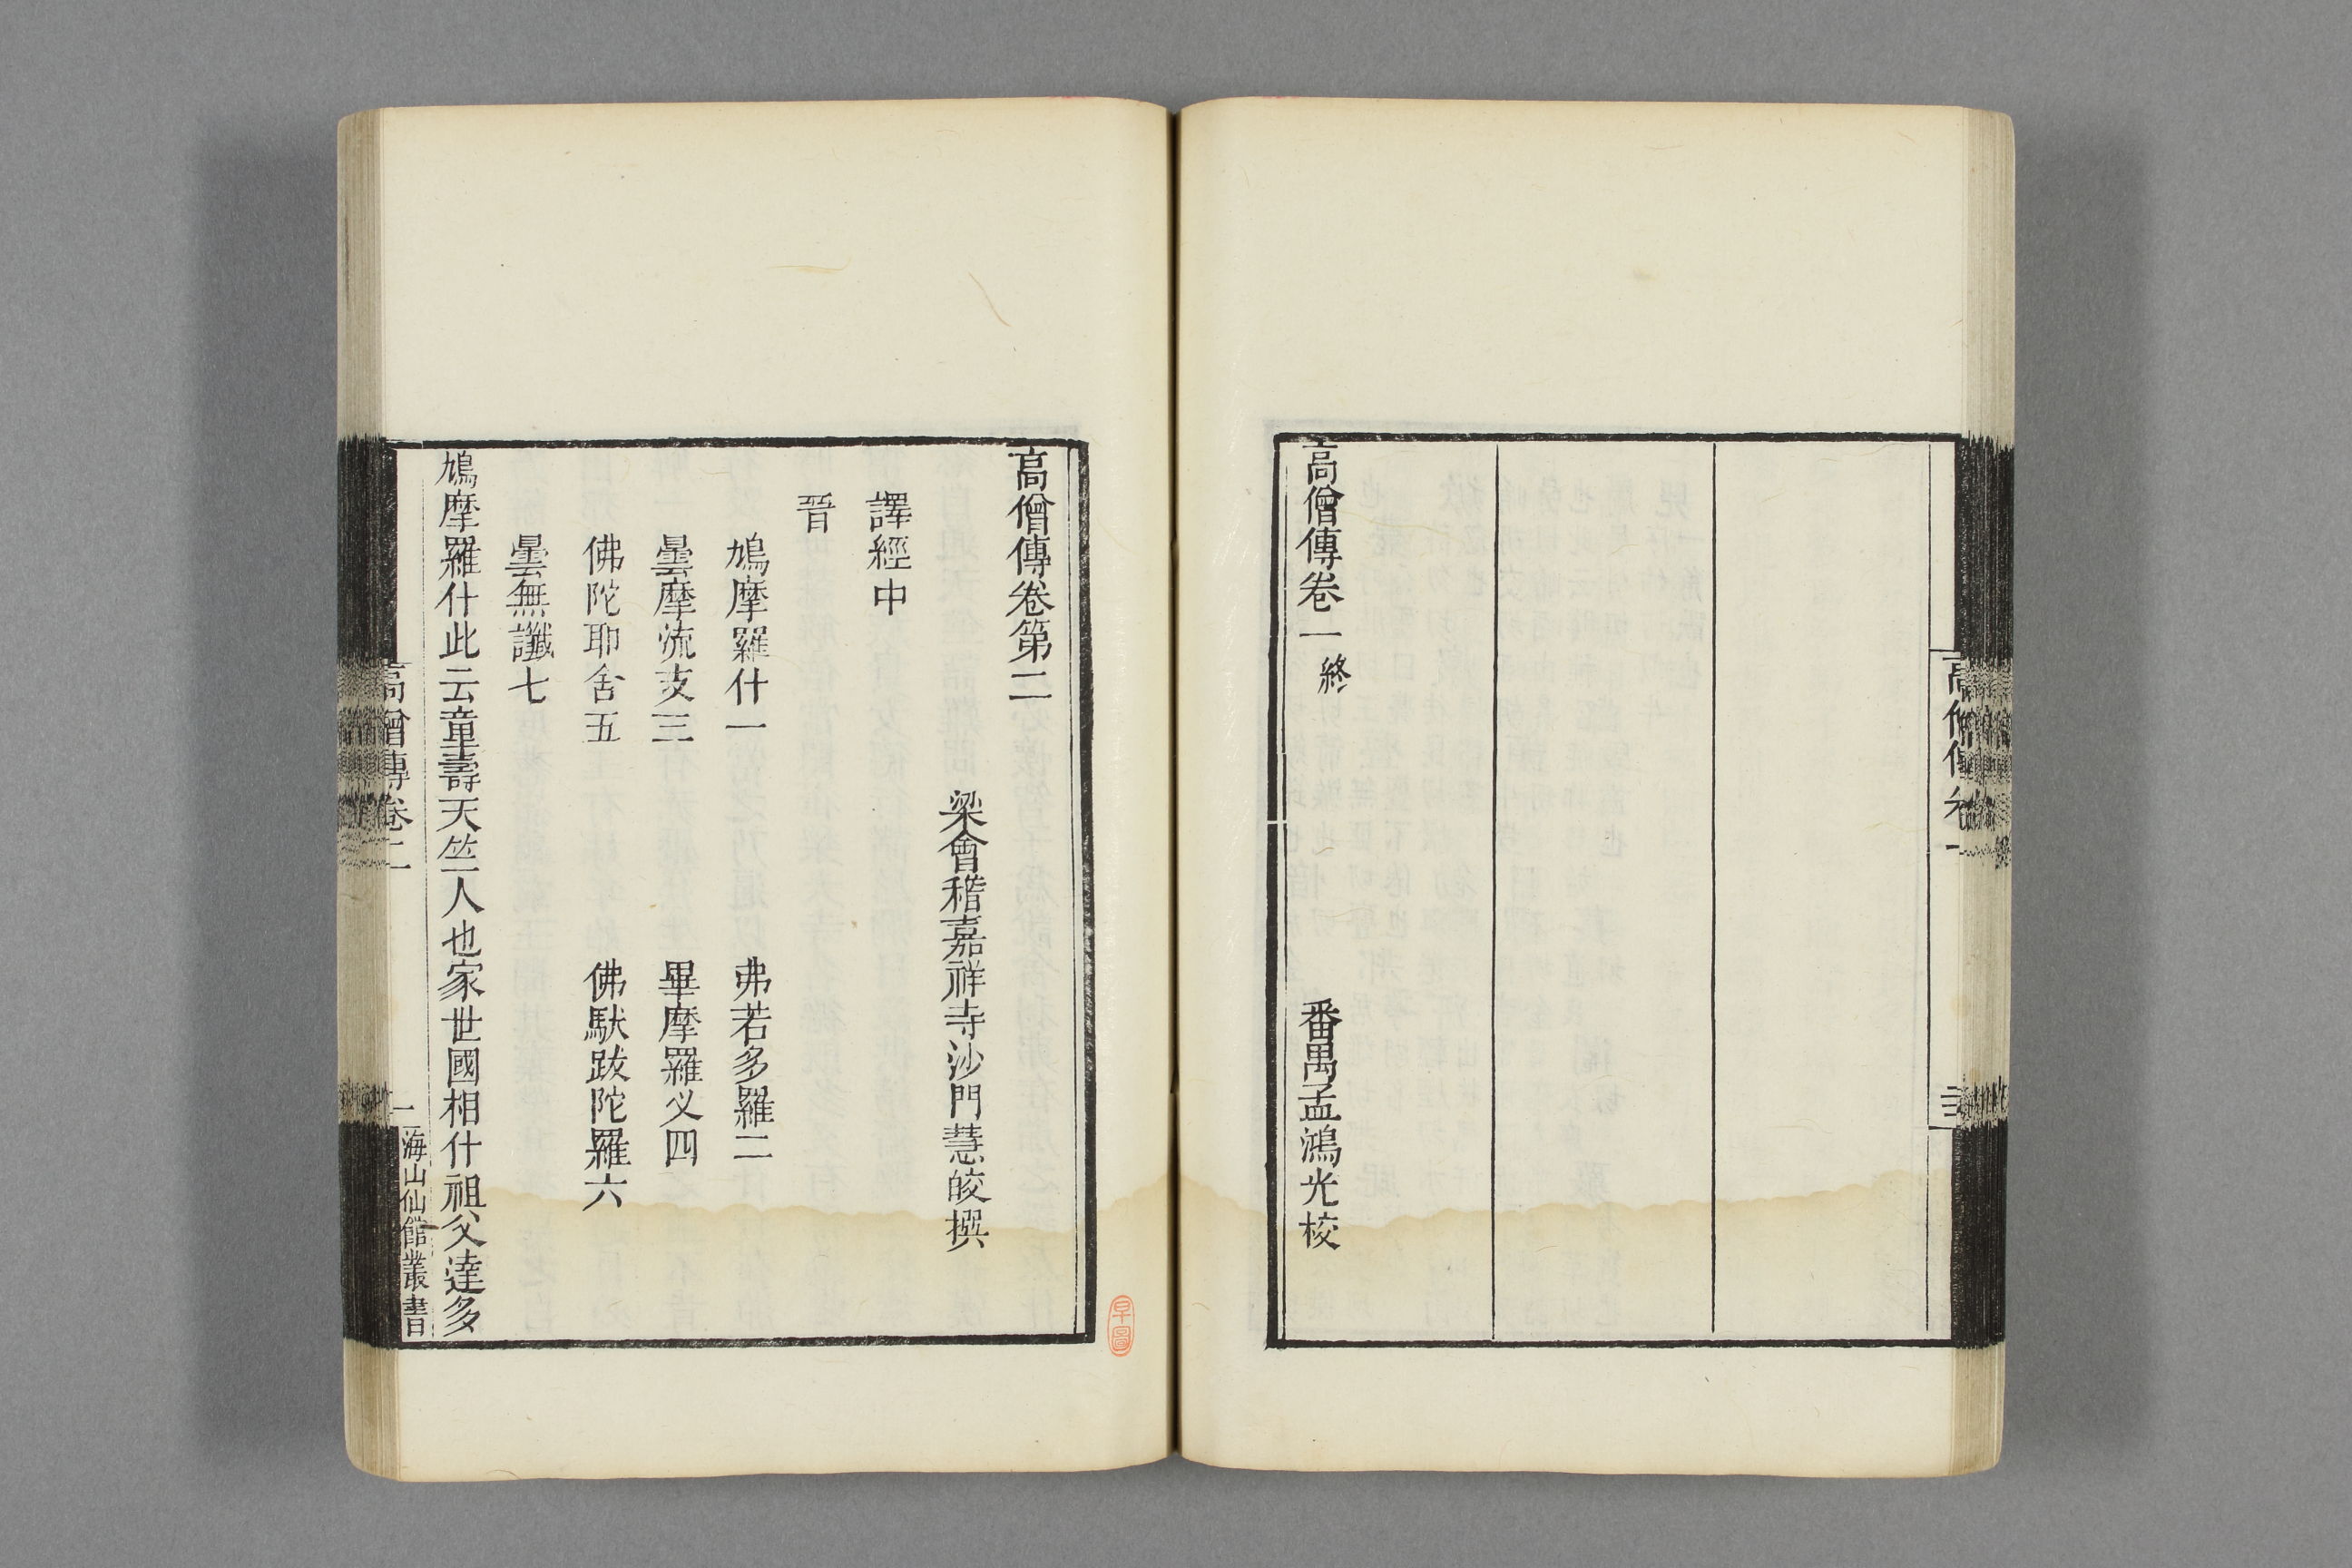 高僧傳卷一
高僧傳卷一終　番禺孟鴻光校
高僧傳卷第二
梁會稽嘉祥寺沙門慧皎撰
譯經中
晉
鳩摩羅什一　弗若多羅二
曇摩流支三　畢摩羅义四
佛陀耶舍五　佛馱跋陀羅六
曇無讖七
鳩摩羅什此云童壽天竺人也家世國相什祖父達多
高僧傳卷二
一
海山仙館叢書
早圖